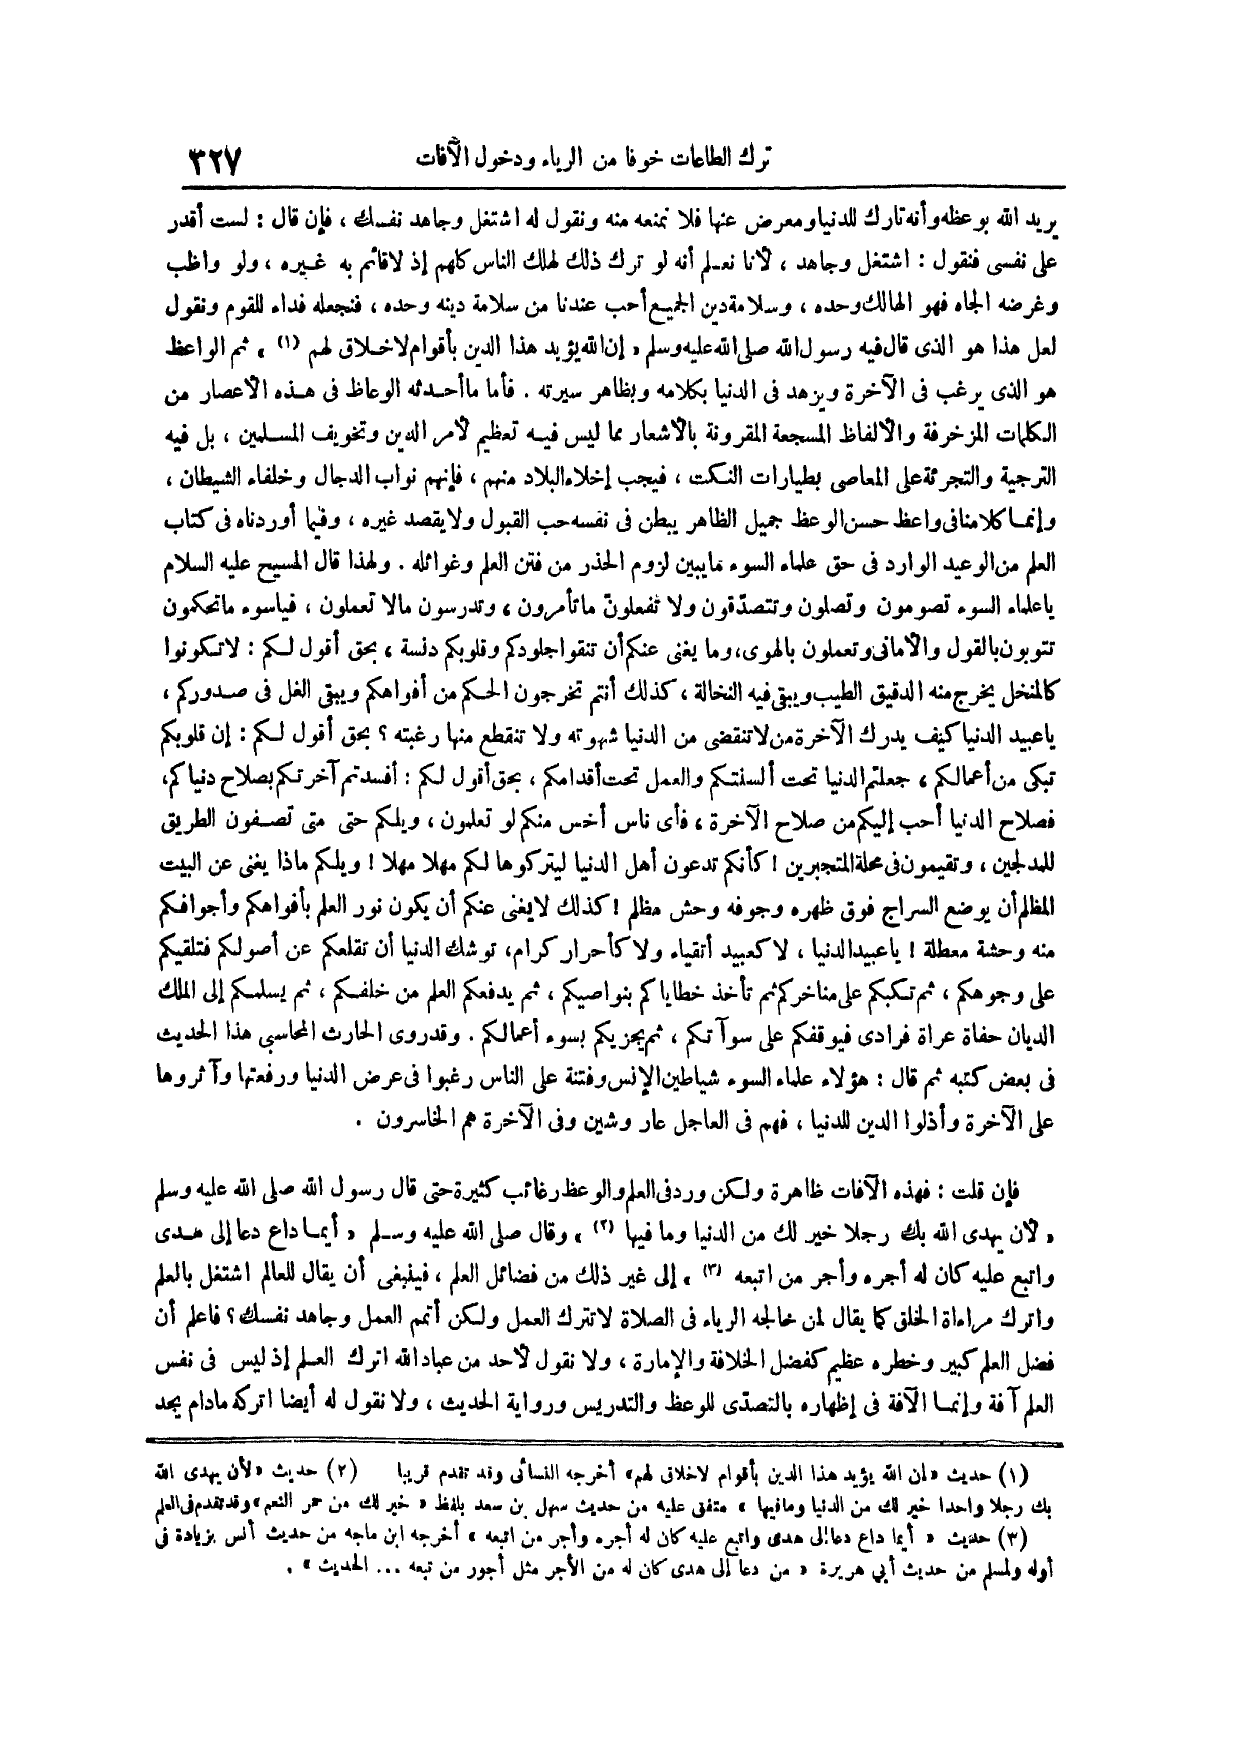 ترك الطاعات خوفا من الرياء ودخول الآفات ٣٢٧
يريد الله بوعظه وأنه تارك للدنيا ومعرض عنها فلا نمنعه منه ونقول له اشتغل وجاهد نفسك ، فإن قال : لست أقدر
على نفسى فنقول : اشتغل وجاهد ، لأنا نعلم أنه لو ترك ذلك لهلك الناس كلهم إذ لا قائم به غيره ، ولو واظب
وغرضه الجاه فهو الهالك وحده ، وسلامة دين الجميع أحب عندنا من سلامة دينه وحده ، فنجعله فداء للقوم ونقول
لعل هذا هو الذى قال فيه رسول الله صلى الله عليه وسلم « إن الله يؤيد هذا الدين بأقوام لا خلاق لهم (١) » ثم الواعظ
هو الذى يرغب فى الآخرة ويزهد فى الدنيا بكلامه وبظاهر سيرته . فأما ما أحدثه الوعاظ فى هذه الأعصار من
الكلمات المزخرفة والألفاظ المسجعة المقرونة بالأشعار مما ليس فيه تعظيم لأمر الدين وتخويف المسلمين ، بل فيه
الترجية والتجرئة على المعاصى بطيارات النكت ، فيجب إخلاء البلاد منهم ، فإنهم نواب الدجال وخلفاء الشيطان ،
وإنما كلامنا فى واعظ حسن الوعظ جميل الظاهر يبطن فى نفسه حب القبول ولا يقصد غيره ، وفيما أوردناه فى كتاب
العلم من الوعيد الوارد فى حق علماء السوء ما يبين لزوم الحذر من فتن العلم وغوائله . ولهذا قال المسيح عليه السلام
يا علماء السوء تصومون وتصلون وتتصدّقون ولا تفعلون ما تأمرون ، وتدرسون مالا تعملون ، فياسوء ما تحكمون
تتوبون بالقول والأمانى وتعملون بالهوى، وما يغنى عنكم أن تنقوا جلودكم وقلوبكم دنسة ، بحق أقول لكم : لا تكونوا
كالمنخل يخرج منه الدقيق الطيب ويبقى فيه النخالة ، كذلك أنتم تخرجون الحكم من أفواهكم ويبقى الغل فى صدوركم ،
يا عبيد الدنيا كيف يدرك الآخرة من لا تنقضى من الدنيا شهوته ولا تنقطع منها رغبته ؟ بحق أقول لكم : إن قلوبكم
تبكى من أعمالكم ، جعلتم الدنيا تحت ألسنتكم والعمل تحت أقدامكم ، بحق أقول لكم : أفسدتم آخرتكم بصلاح دنياكم،
فصلاح الدنيا أحب إليكم من صلاح الآخرة ، فأى ناس أخس منكم لو تعلمون ، ويلكم حتى متى تصفون الطريق
للمدلجين ، وتقيمون فى محلة المتجبرين ! كأنكم تدعون أهل الدنيا ليتركوها لكم مهلا مهلا ! ويلكم ماذا يغنى عن البيت
المظلم أن يوضع السراج فوق ظهره وجوفه وحش مظلم ! كذلك لا يغنى عنكم أن يكون نور العلم بأفواهكم وأجوافكم
منه وحشة معطلة ! يا عبيد الدنيا ، لا كعبيد أتقياء ولا كأحرار كرام، توشك الدنيا أن تقلعكم عن أصولكم فتلقيكم
على وجوهكم ، ثم تكبكم على مناخركم ثم تأخذ خطاياكم بنواصيكم ، ثم يدفعكم العلم من خلفكم ، ثم يسلمكم إلى الملك
الديان حفاة عراة فرادى فيوقفكم على سوآتكم ، ثم يجزيكم بسوء أعمالكم . وقد روى الحارث المحاسبي هذا الحديث
فى بعض كتبه ثم قال : هؤلاء علماء السوء شياطين الإنس وفتنة على الناس رغبوا فى عرض الدنيا ورفعتها وآثروها
على الآخرة وأذلوا الدين للدنيا ، فهم فى العاجل عار وشين وفى الآخرة هم الخاسرون .
فإن قلت : فهذه الآفات ظاهرة ولكن ورد فى العلم والوعظ رغائب كثيرة حتى قال رسول الله صلى الله عليه وسلم
« لأن يهدى الله بك رجلا خير لك من الدنيا وما فيها (٢) » وقال صلى الله عليه وسلم « أيما داع دعا إلى هدى
واتبع عليه كان له أجره وأجر من اتبعه (٣) » إلى غير ذلك من فضائل العلم ، فينبغى أن يقال للعالم اشتغل بالعلم
واترك مراءاة الخلق كما يقال لمن خالجه الرياء فى الصلاة لا تترك العمل ولكن أتمم العمل وجاهد نفسك ؟ فاعلم أن
فضل العلم كبير وخطره عظيم كفضل الخلافة والإمارة ، ولا نقول لأحد من عباد الله اترك العلم إذ ليس فى نفس
العلم آفة وإنما الآفة فى إظهاره بالتصدّى للوعظ والتدريس ورواية الحديث ، ولا نقول له أيضا اتركه مادام يجد
(١) حديث «إن الله يؤيد هذا الدين بأقوام لاخلاق لهم» أخرجه النسائى وقد تقدم قريبا (٢) حديث «لأن يهدى الله
بك رجلا واحدا خير لك من الدنيا ومافيها » متفق عليه من حديث سهل بن سعد بلفظ « خير لك من حمر النعم» وقد تقدم فى العلم
(٣) حديث « أيما داع دعا إلى هدى واتبع عليه كان له أجره وأجر من اتبعه » أخرجه ابن ماجه من حديث أنس بزيادة فى
أوله ولمسلم من حديث أبي هريرة « من دعا إلى هدى كان له من الأجر مثل أجور من تبعه ... الحديث » .